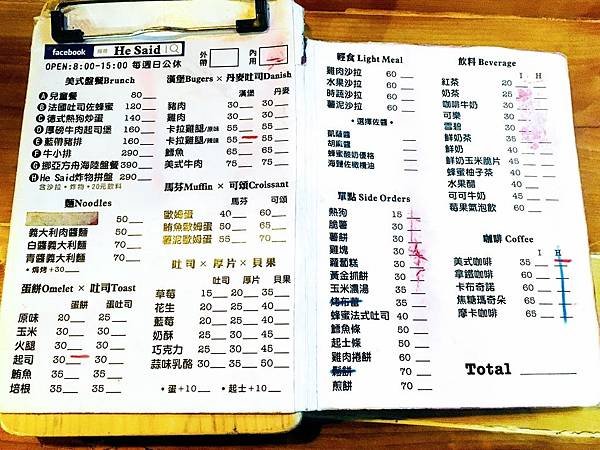 facebook 搜尋 He Said
OPEN:8:00-15:00 每週日公休
外帶 內用
美式盤餐Brunch
Ⓐ兒童餐 80
Ⓑ法國吐司佐蜂蜜 120
Ⓒ德式熱狗炒蛋 140
Ⓓ厚磅牛肉起司堡 160
Ⓔ藍帶豬排 160
Ⓕ牛小排 290
Ⓖ挪亞方舟海陸盤餐390
ⒽHe Said炸物拼盤 290
含沙拉・炸物・20元飲料
麵Noodles
50
義大利肉醬麵 50
白醬義大利麵 70
青醬義大利麵 70
・焗烤+30
蛋餅Omelet × 吐司Toast
蛋餅 蛋吐司
原味 20 25
玉米 30 30
火腿 30 30
起司 30 30
鮪魚 35 35
培根 35 35
漢堡Bugers × 丹麥吐司Danish
漢堡 丹麥
豬肉 30 30
雞肉 30 30
卡拉雞腿/原味 55 55
卡拉雞腿/辣味 55 55
鱈魚 55 55
美式牛肉 75 75
馬芬Muffin × 可頌Croissant
馬芬 可頌
歐姆蛋 40 60
鮪魚歐姆蛋 50 70
薯泥歐姆蛋 50 70
吐司 × 厚片 × 貝果
吐司 厚片 貝果
草莓 15 20 35
花生 20 25 40
藍莓 20 25 40
奶酥 25 30 45
巧克力 25 30 45
蒜味乳酪 30 35 50
・蛋+10 ・起士+10
輕食 Light Meal
雞肉沙拉 60
水果沙拉 60
時蔬沙拉 60
薯泥沙拉 60
・選擇佐醬・
凱薩醬
胡麻醬
蜂蜜酸奶優格
海鹽佐橄欖油
單點 Side Orders
熱狗 15
脆薯 30
薯餅 30
雞塊 30
蘿蔔糕 30
黃金抓餅 30
玉米濃湯 35
35
蜂蜜法式吐司 40
鱈魚條 50
起士條 50
雞肉捲餅 60
鬆餅 70
煎餅 70
飲料 Beverage
I H
紅茶 20
奶茶 25
咖啡牛奶 30
可樂 30
雪碧 30
鮮奶茶 35
鮮奶 40
鮮奶玉米脆片 45
蜂蜜柚子茶 40
水果醋 40
可可牛奶 45
莓果氣泡飲 60
咖啡 Coffee
I H
美式咖啡 35
拿鐵咖啡 60
卡布奇諾 60
焦糖瑪奇朵 65
摩卡咖啡 65
Total